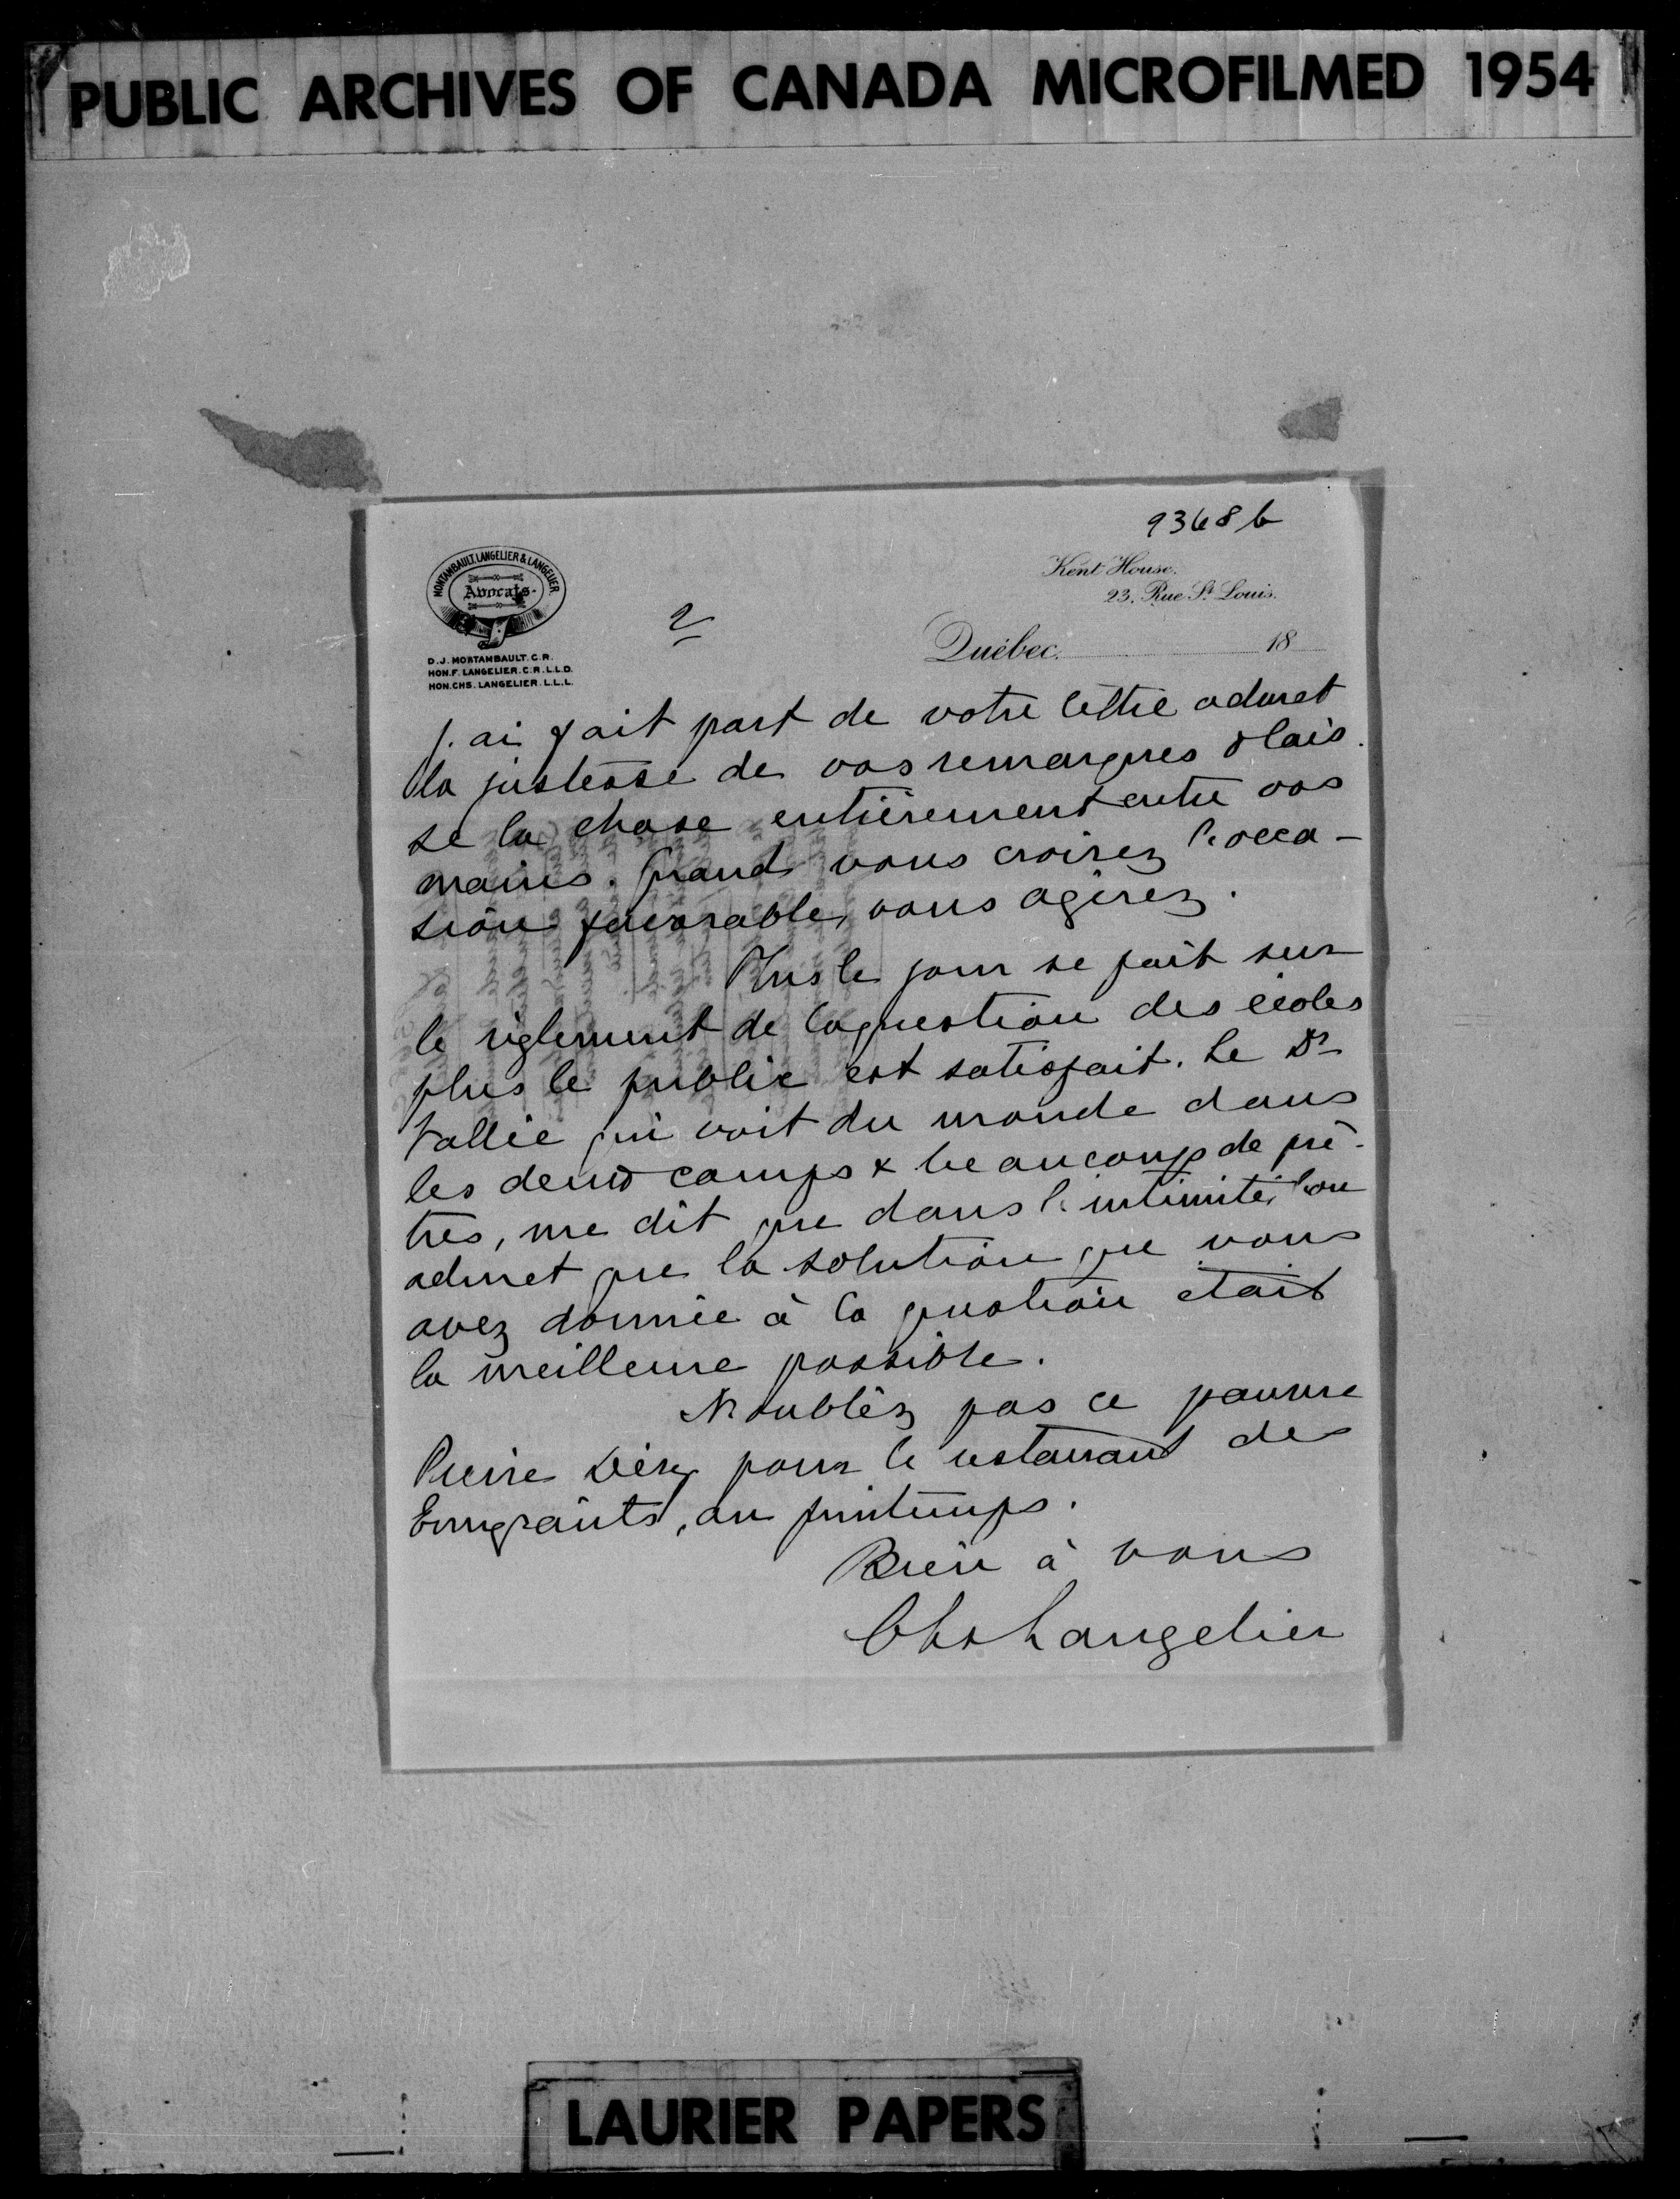 PUBLIC ARCHIVES OF CANADA MICROFILMED 1954
9368 b
MONTAMBAULT, LANGELIER & LANGELIER.
Avocats.
Kent House.
23, Rue St. Louis.
2
Québec. 18
D. J. MONTAMBAULT. C. R.
HON. F. LANGELIER. C. R. L. L. D.
HON. CHS. LANGELIER. L. L. L.
j'ai fait part de votre lettre admet
la justesse de vos remarques & lais-
se la chose entièrement entre vos
mains. Quand vous croirez l'occa-
sion favorable, vous agirez.
Plus le jour se fait sur
le règlement de la question des écoles
plus le public est satisfait. Le Dr
Vallée qui voit du monde dans
les deux camps & beaucoup de prê-
tres, me dit que dans l'intimité, l'on
admet que la solution que vous
avez donnée à la question était
la meilleure possible.
N'oubliez pas ce pauvre
Pierre pour le restaurant des
Emigrants, au printemps.
Bien à vous
Chs Langelier
LAURIER PAPERS